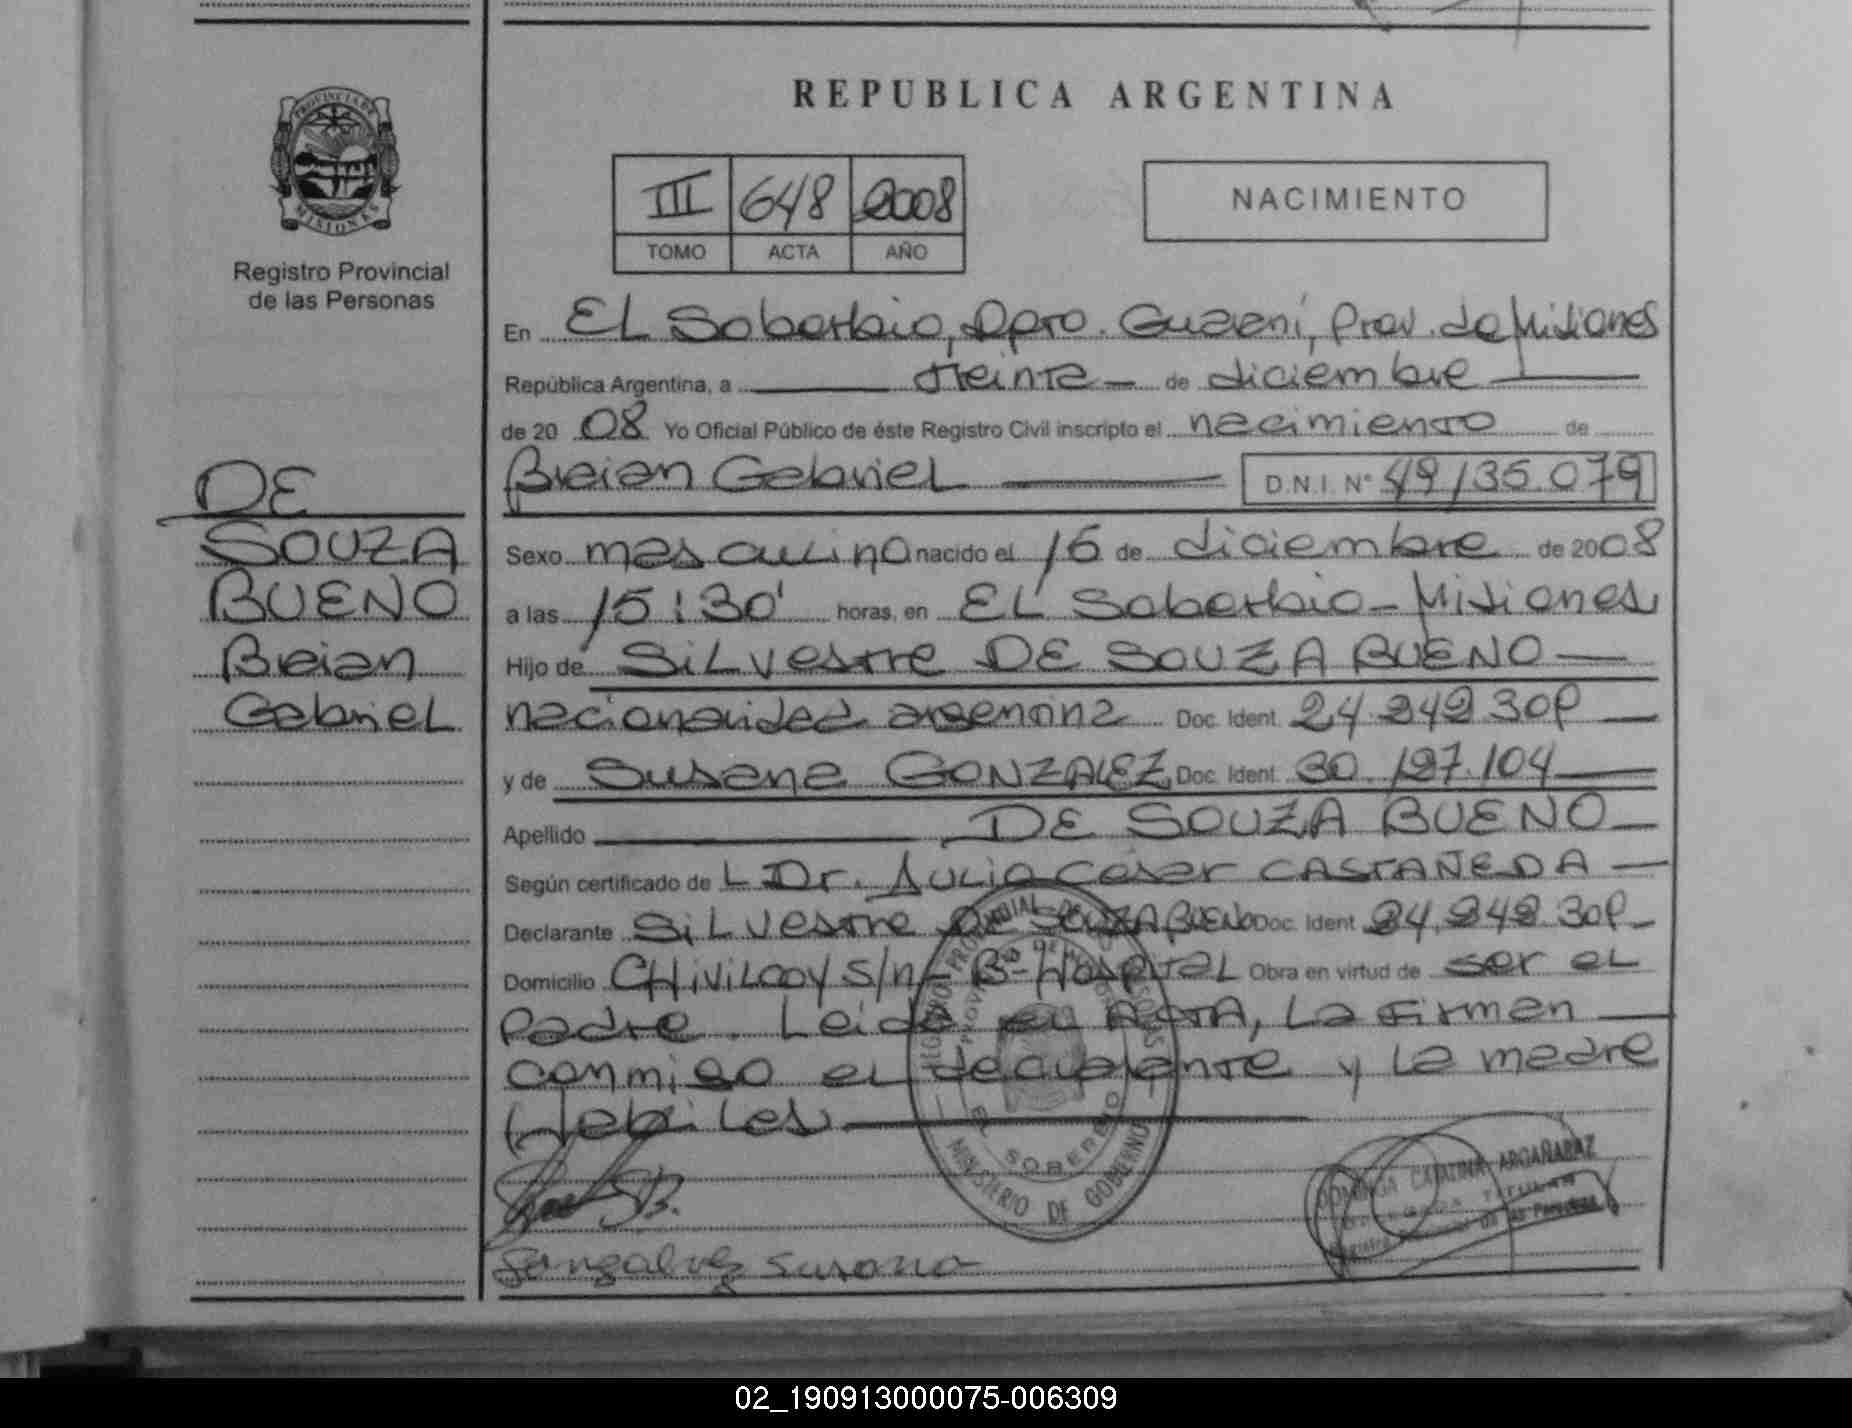 PROVINCIA DE
MISIONES
Registro Provincial
de las Personas
DE
SOUZA
BUENO
Breian
Gabriel
REPUBLICA ARGENTINA
III 648 2008
TOMO ACTA AÑO
NACIMIENTO
En EL Soberbio, Dpto. Guaraní, Prov. de Misiones
República Argentina, a treinta de diciembre
de 2008 Yo Oficial Público de éste Registro Civil inscripto el nacimiento de
Breian Gabriel D.N.I. N° 49135.079
Sexo masculino nacido el 16 de diciembre de 2008
a las 15:30' horas, en EL Soberbio - Misiones
Hijo de Silvestre DE SOUZA BUENO
nacionalidad argentina Doc. Ident. 24.242.309
y de Susana GONZALEZ Doc. Ident. 30.197.104
Apellido DE SOUZA BUENO
Según certificado de L Dr. Julio César CASTAÑEDA
Declarante Silvestre DE SOUZA BUENO Doc. Ident. 24.242.309
Domicilio CHIVILCOY s/n - B- Hospital Obra en virtud de ser el
Padre. Leida el ACTA, La Firman
conmigo el declarante y la madre
Habiles
REGISTRO PROVINCIAL DE LAS PERSONAS
PROVINCIA DE MISIONES
EL SOBERBIO
MINISTERIO DE GOBIERNO
DOMINGA CATALINA ARGAÑARAZ
DELEGADA TITULAR
Registro Provincial de las Personas
Susana
02_190913000075-006309